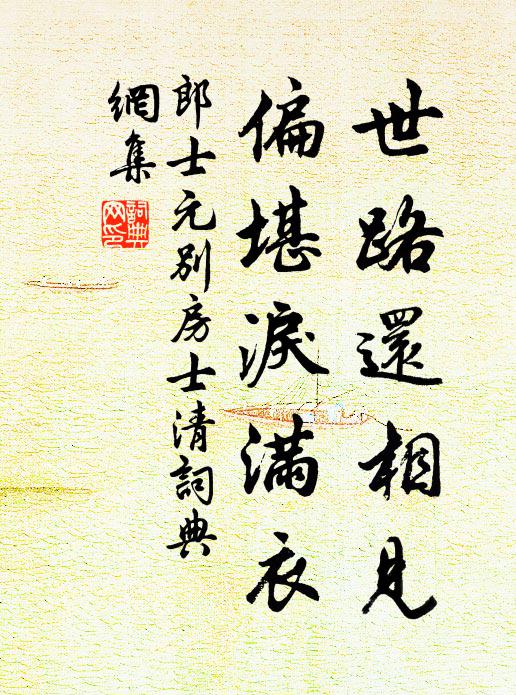 世路還相見
偏堪淚滿衣
郎士元別房士清詞典
網集
詞典網印